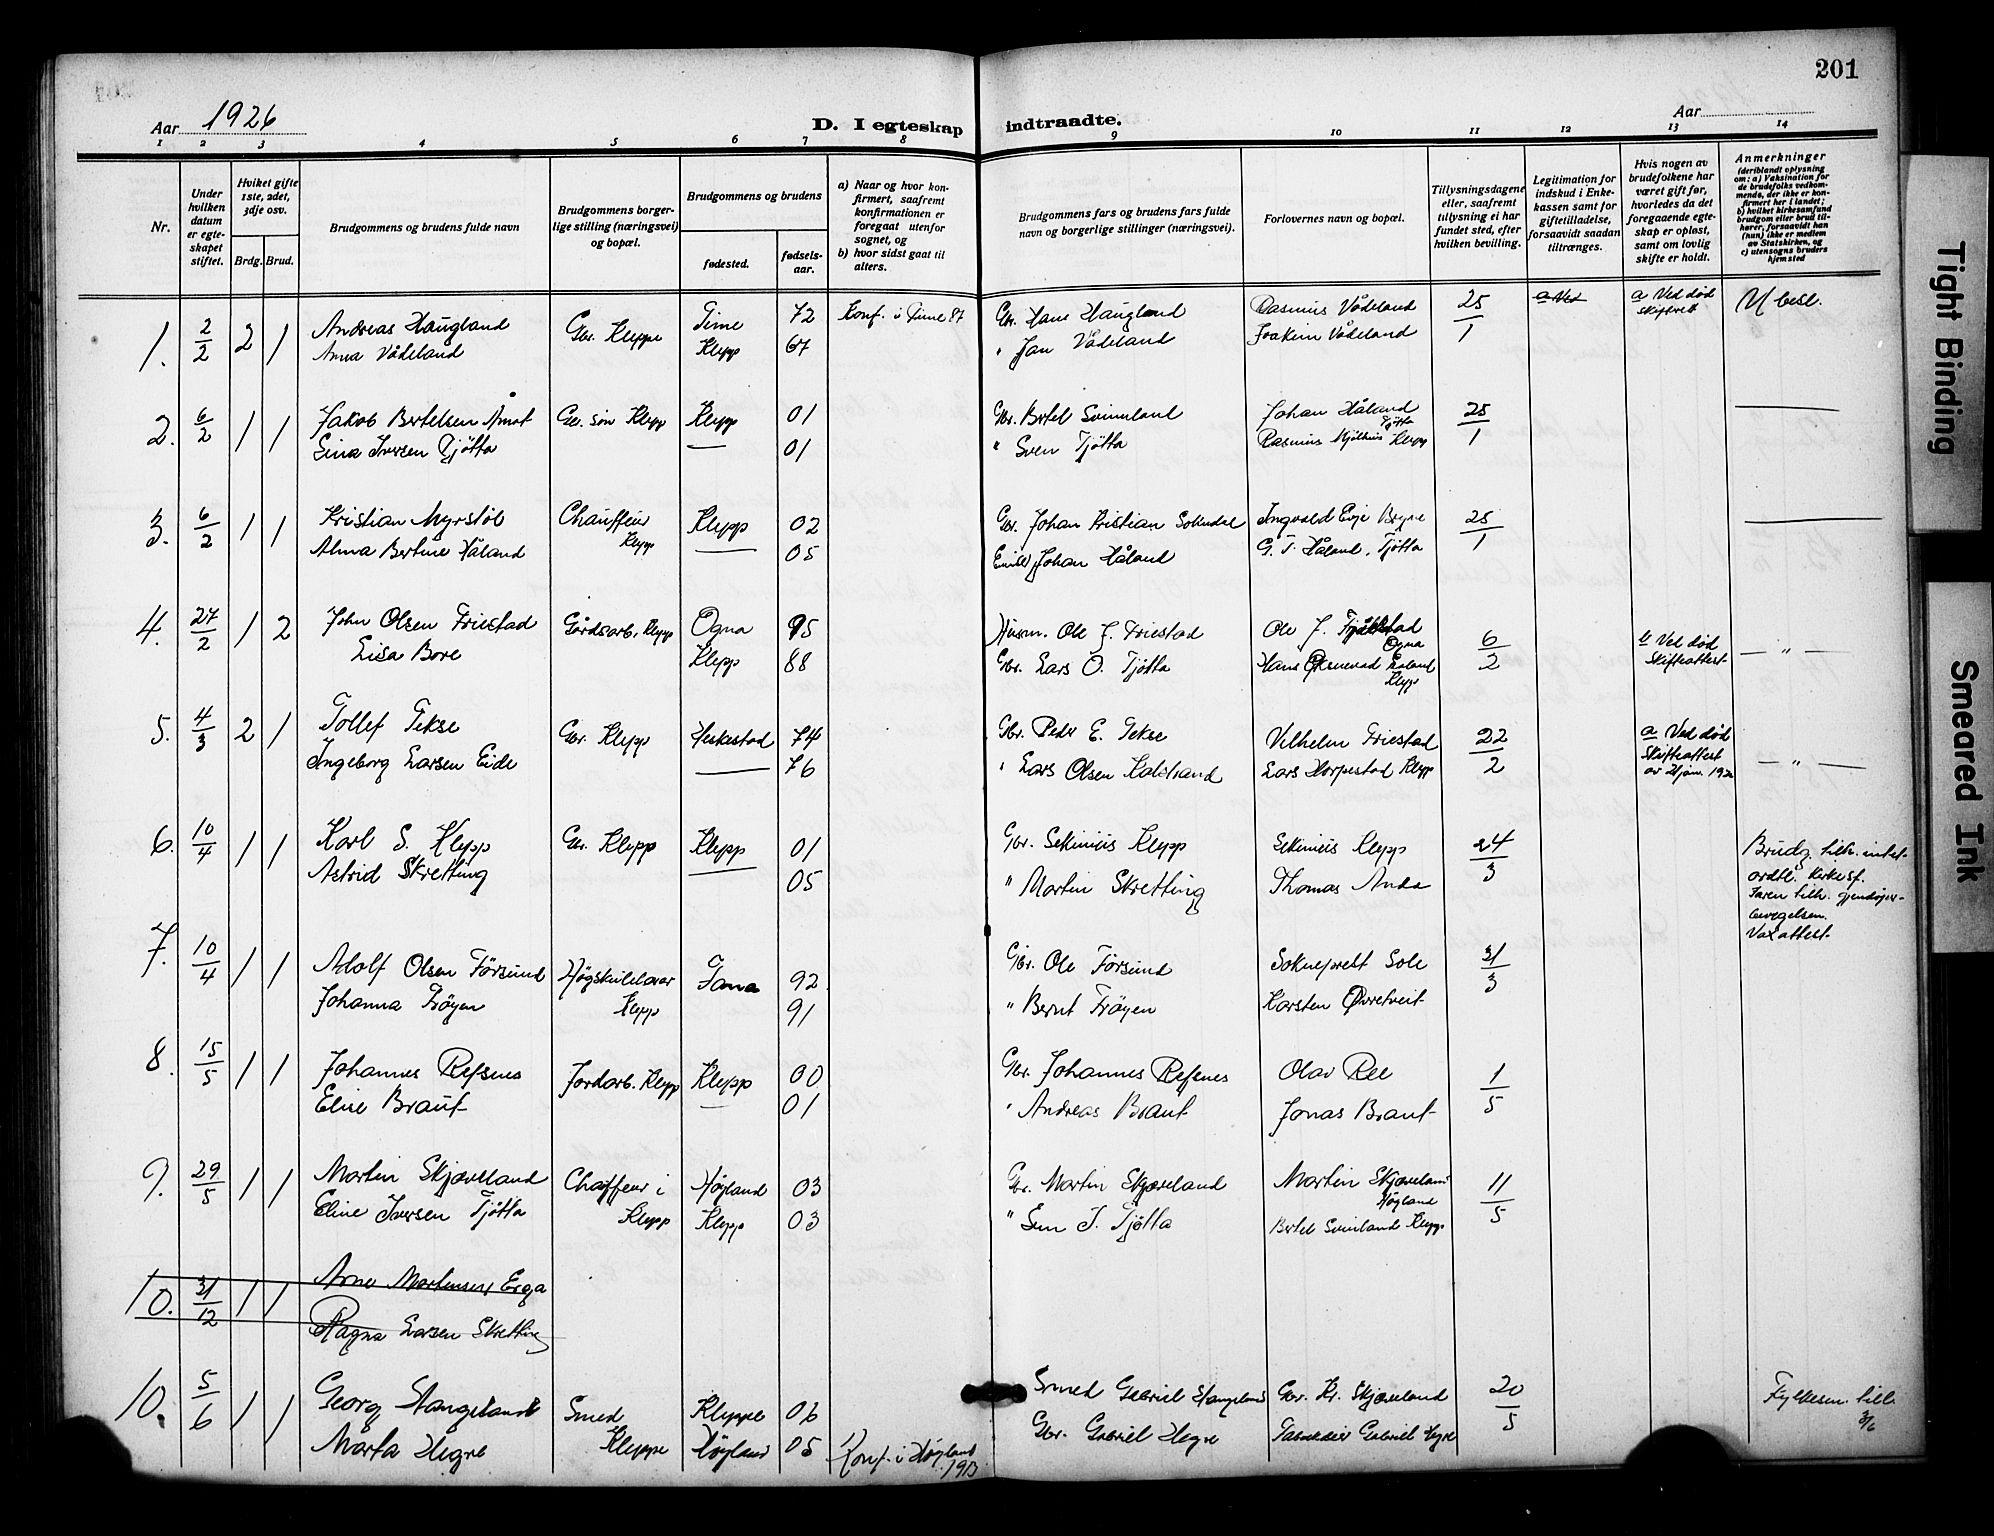 201
Aar 1926
D. I egteskap indtraadte.
Aar
1 2 3 4 5 6 7 8 9 10 11 12 13 14
Nr.
Under hvilken datum er egteskapet stiftet.
Hviket gifte 1ste, 2det, 3dje osv.
Brdg. Brud.
Brudgommens og brudens fulde navn
Brudgommens borgerlige stilling (næringsvei) og bopæl.
Brudgommens og brudens
fødested.
fødselsaar.
a) Naar og hvor konfirmert, saafremt konfirmationen er foregaat utenfor sognet, og
b) hvor sidst gaat til alters.
Brudgommens fars og brudens fars fulde navn og borgerlige stillinger (næringsvei).
Forlovernes navn og bopæl.
Tillysningsdagene eller, saafremt tillysning ei har fundet sted, efter hvilken bevilling.
Legitimation for indskud i Enkekassen samt for giftetilladelse, forsaavidt saadan tiltrænges.
Hvis nogen av brudefolkene har været gift før, hvorledes da det foregaaende egteskap er opløst, samt om lovlig skifte er holdt.
Anmerkninger (deriblandt oplysning om: a) Vaksination for de brudefolks vedkommende, der ikke er konfirmert her i landet; b) hvilket kirkesamfund brudgom eller brud tilhører, forsaavidt han (hun) ikke er medlem av Statskirken, og c) utensogns bruders hjemsted
1. 2/2 2 1 Andreas Haugland Gbr. Kleppe Time 72 Konf. i Time 87 Gbr. Hans Haugland Rasmus Vådeland 25/1 a Ved a Ved død
Anna Vådeland Klepp 67 " Jan Vådeland Joakim Vådeland
2. 6/2 1 1 Jakob Bertelsen Åmot Gbr. søn Klepp Klepp 01 Gbr. Bertel Svimland Johan Håland Tjøtta 25/1 —
Sina Iversen Tjøtta — 01 " Sven Tjøtta Rasmus Klepp
3. 6/2 1 1 Kristian Myrstøl Chauffeur Klepp Klepp 02 Gbr. Johan Kristian Ingvald Evje Bryne 25/1 —
Alma Bertine Håland — 05 Johan Håland G. T. Håland, Tjøtta
4. 27/2 1 2 John Olsen Friestad Gårdsarb. Klepp Ogna 95 Husm. Ole J. Friestad Ole J. Ogna 6/2 b Ved død — " —
Lisa Bore Klepp 88 Gbr. Lars O. Tjøtta Hans Klepp Skifteattest
5. 4/3 2 1 Tollef Tekse Gbr. Klepp Heskestad 74 Gbr. Peder E. Tekse Vilhelm Friestad 22/2 a Ved død
Ingeborg Larsen Eide — 76 " Lars Olsen Kalstrand Lars Horpestad Klepp Skifteattest — " —
6. 10/4 1 1 Karl S. Klepp Gbr. Klepp Klepp 01 Gbr. Sekinius Klepp Sekinius Klepp 24/3
Astrid Skretting — 05 " Martin Skretting Thomas Anda
Vaxattest.
7. 10/4 1 1 Adolf Olsen Førsund Høgskulelærar Klepp Fana 92 Gbr. Ole Førsund Sokneprest Sole 31/3
Johanna Frøyen 91 " Bernt Frøyen Karsten Øvretveit
8. 15/5 1 1 Johannes Refsnes Jordarb. Klepp Klepp 00 Gbr. Johannes Refsnes Olav Ree 1/5
Eline Braut — 01 " Andreas Braut Jonas Braut
9. 29/5 1 1 Martin Skjæveland Chauffeur i Klepp Høyland 03 Gbr. Martin Skjæveland Martin Skjæveland Høyland 11/5
Eline Iversen Tjøtta Klepp 03 " Sven I. Tjøtta Bertel Svimland Klepp
10. 31/12 1 1 Arne Mortensen Erga
Ragna Larsen Skretting
10. 5/6 1 1 Georg Stangeland Smed Kleppe Kleppe 06 Smed Gabriel Stangeland Gbr. Kr. Skjæveland 20/5 Fylkesm. till. 3/6
Marta Hegre Høyland 05 Konf. i Høyland 1913 Gbr. Gabriel Hegre Gabriel Hegre
Tight Binding
Smeared Ink